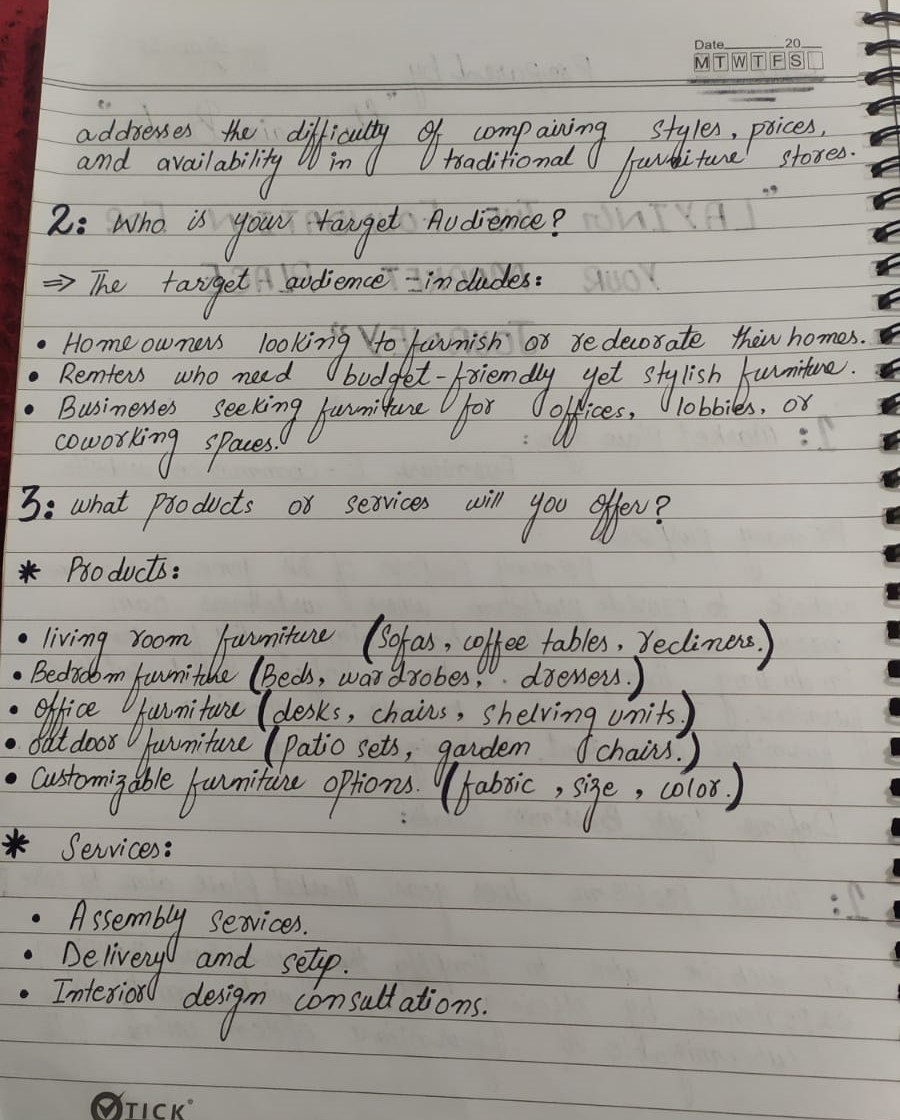 Date 20
M T W T F S
addresses the difficulty of compairing styles, prices,
and availability in traditional furniture stores.
2: Who is your target Audience?
⇒ The target audience includes:
• Homeowners looking to furnish or redecorate their homes.
• Remters who need budget-friemdly yet stylish furmiture.
• Businesses seeking furmiture for offices, lobbies, or
coworking spaces.
3: what products or services will you offer?
* Products:
• living room furmiture (Sofas, coffee tables, recliners.)
• Bedroom furmiture (Beds, wardrobes, dressers.)
• office furmiture (desks, chairs, shelving units.)
• outdoor furmiture (patio sets, gardem chairs.)
• Customizable furmiture options. (fabric, size, color.)
* Services:
• Assembly services.
• Delivery and setup.
• Interior design consultations.
TICK